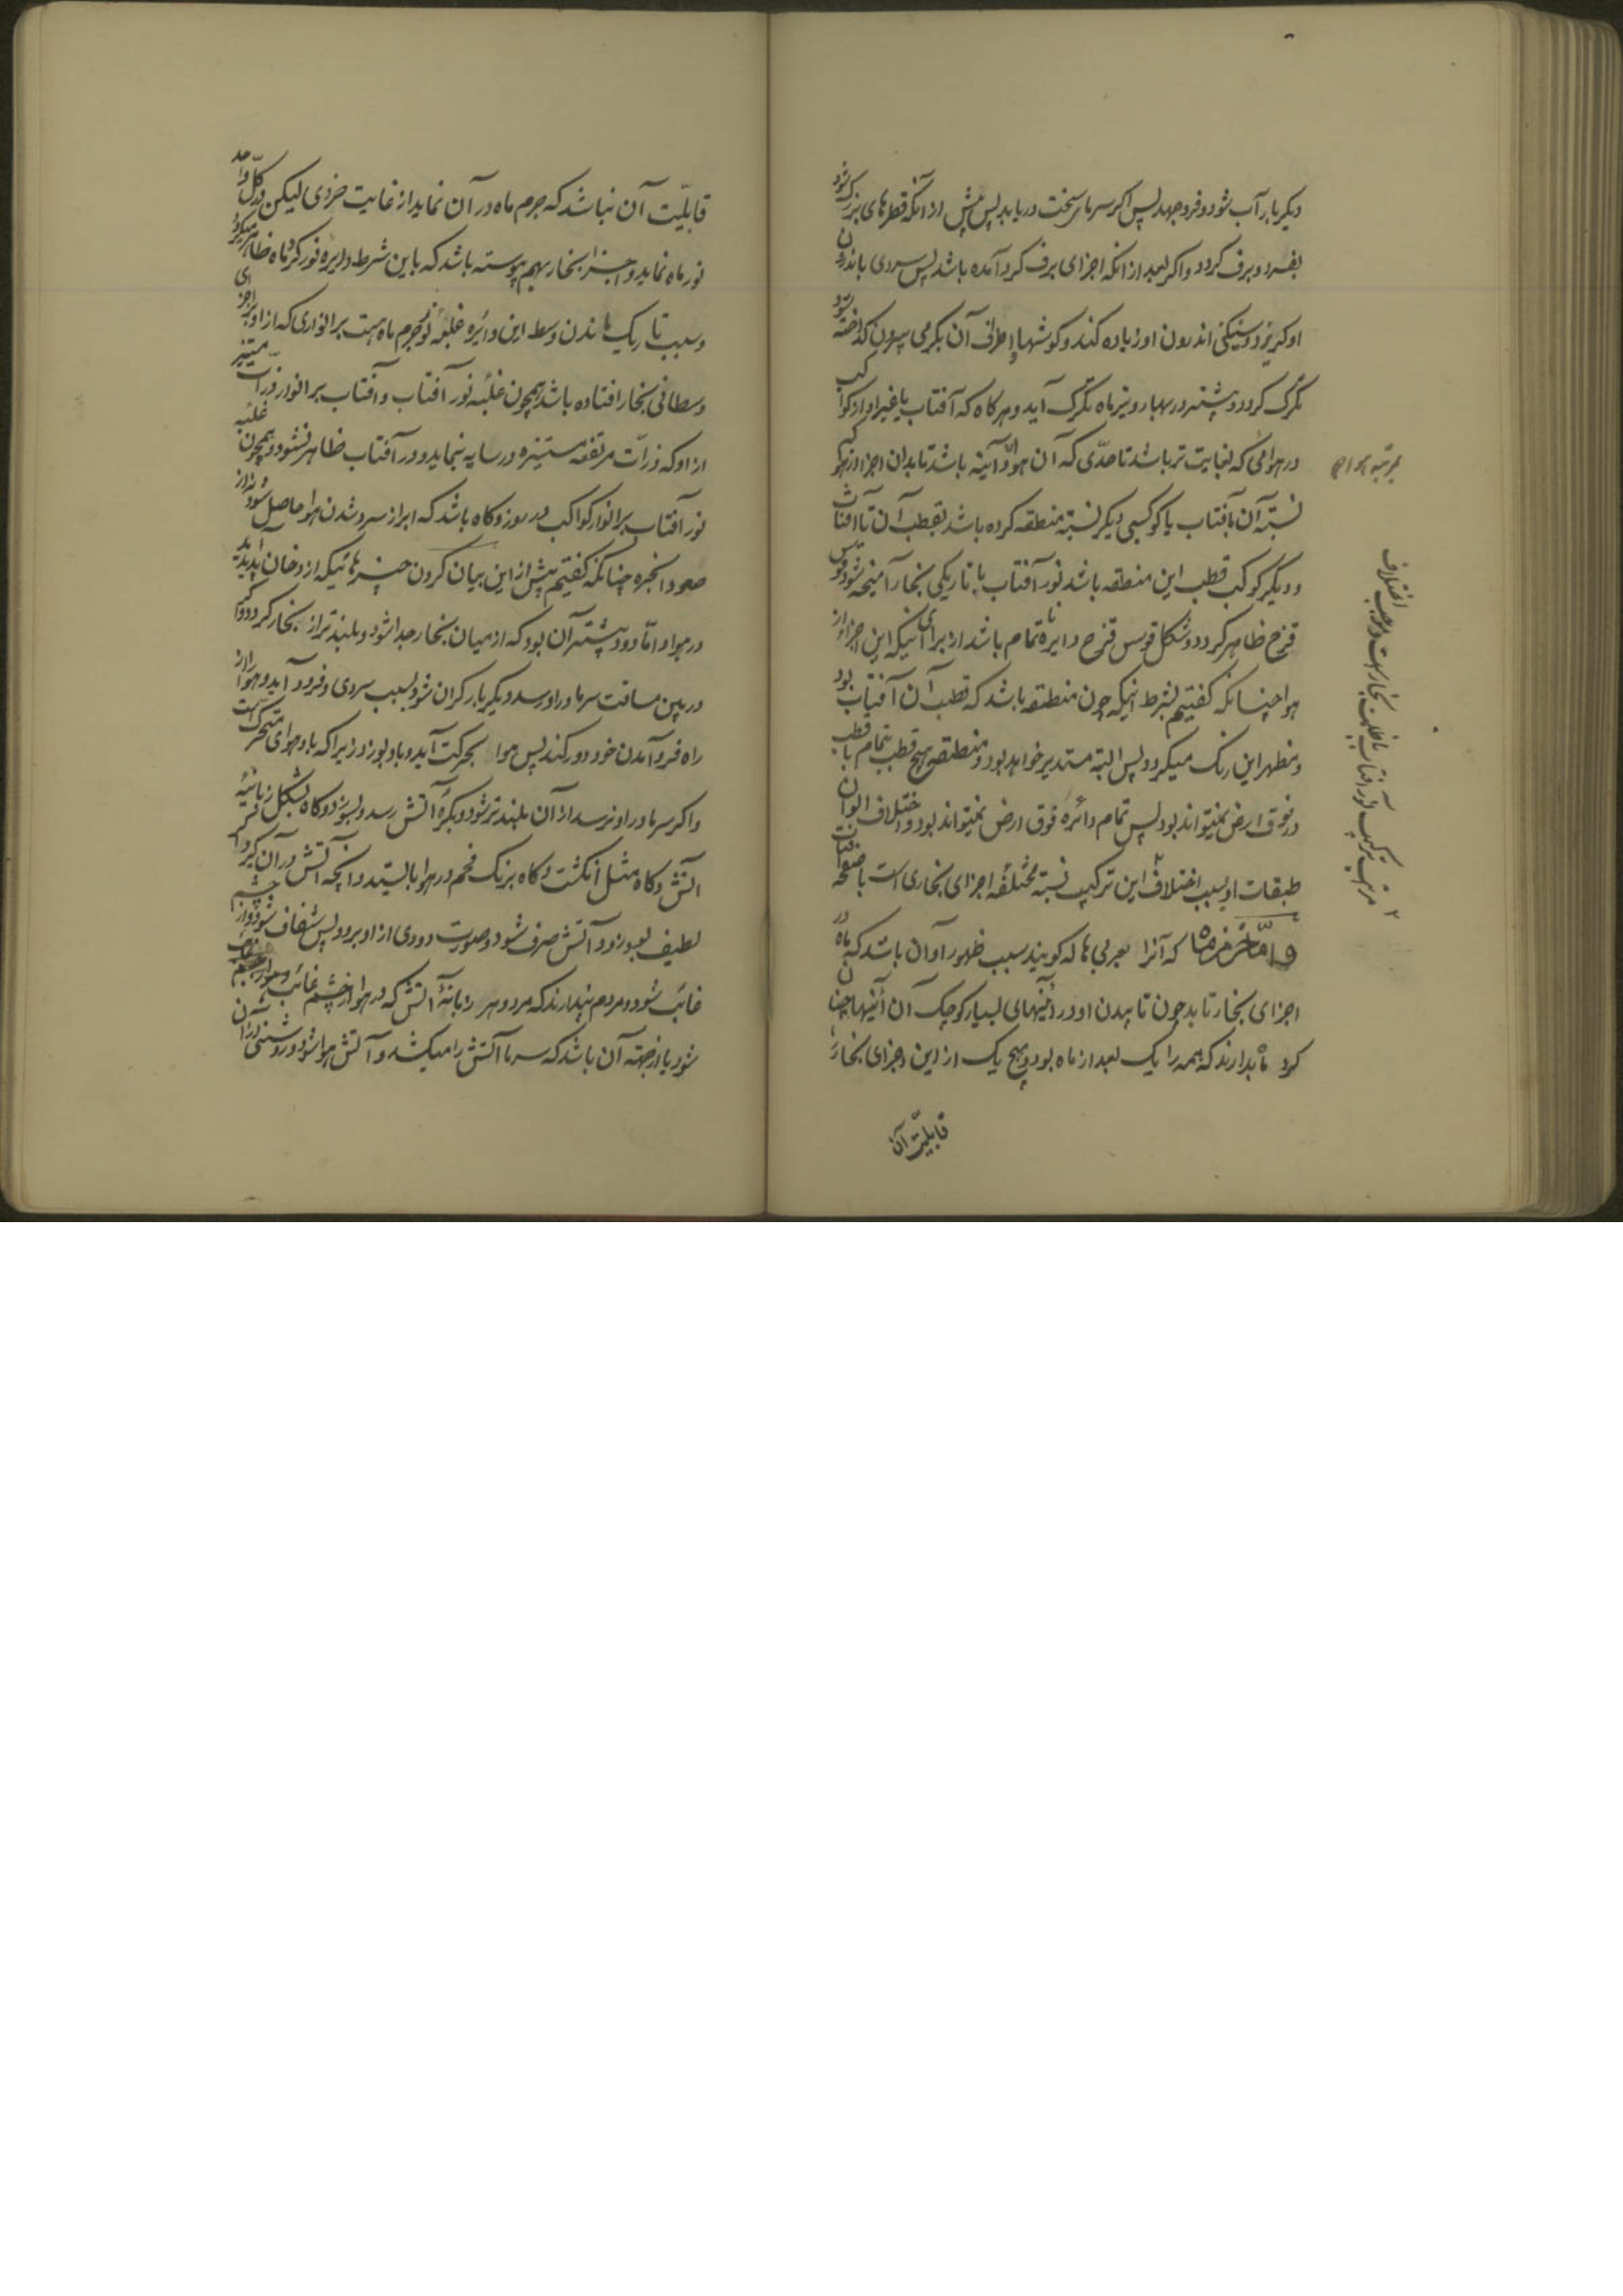 دیگر بار آب شود و فرو جهد پس اگر سرمای سخت در یابد پس پیش از آنکه قطرهای بزرگ شود
بفسرد و برف گردد و اگر بعد از آنکه اجزای برف گرد آمده باشد پس سردی باندرون
او گریزد و اندرون او زیاده کند و گوشها و اطراف آن بگرمی بیرون گداخته شود
تگرگ گردد و بیشتر در بهار و تیر ماه تگرگ آید و هرگاه که آفتاب یا غیر او از کواکب
در هوائی که بغایت تر باشد تا حدی که آن هوا آینه باشد تا بدان اجزا از هوا که
نسبة آن بآفتاب یا کوکبی دیگر نسبة منطقه کرده باشد بقطب آن تا آفتاب
و دیگر کوکب قطب این منطقه باشد نور آفتاب با تاریکی بخار آمیخته شود و قوس
قزح ظاهر گردد و شکل قوس قزح دایره تمام باشد از برای آنکه این جزا از
هوا چنانکه گفتیم بشرط آنکه چون منطقه باشد که قطب آن آفتاب بود
و مظهر این رنگ میگردد پس البته مستدیر خواهد بود و منطقه هیچ قطب بتمام با قطب
در فوق ارض نمیتواند بود پس تمام دائره فوق ارض نمیتواند بود و اختلاف الوان
طبقات او بسبب اختلاف این ترکیب نسبة مختلفه اجزای بخاری است با صفحه آفتاب
و اما خرمن ماه که آنرا بعربی هاله گویند سبب ظهور او آن باشد که ماه در
اجزای بخار تابد چون تابیدن او در آئینهای بسیار کوچک آن آئینها چنان
گرد ماه بدارند که همه را یک بعد از ماه بود و هیچ یک از این اجزای بخار را
قابلیت آن
مرتبه هواء
قابلیت آن نباشد که جرم ماه در آن نماید از غایت خردی لیکن در کل واحد
نور ماه نماید و اجزا بخار بهم پیوسته باشد که باین شرط دایره نور گرد ماه ظاهر میگردد
و سبب تاریک ماندن وسط این دائره غلبه نور جرم ماه است بر انواری که از او بر اجزای
وسطانی بخار افتاده باشد همچون غلبه نور آفتاب و آفتاب بر انوار ذرات مستنیر
از او که ذرات مرتفعه مستنیره در سایه بنماید و در آفتاب ظاهر نشود و همچون غلبه
نور آفتاب بر انوار کواکب در روز و گاه باشد که ابر از سرد شدن هوا حاصل شود نه از
صعود ابخره چنانکه گفتیم پیش از این بیان کردن چیزهائیکه از دخان پدید آید
در هوا و اما دود بیشتر آن بود که از میان بخار جدا شود و بلند تر از بخار گردد و اگر
در بین مسافت سرما در او رسد دیگر بار گران شود بسبب سردی و فرود آید و هوا را از
راه فرو آمدن خود دور کند پس هوا بحرکت آید و باد بوزد زیرا که باد هوای متحرک است
و اگر سرما در او نرسد از آن بلند تر شود و بکره آتش رسد و بسوزد و گاه بشکل زبانه
آتش و گاه مثل انگشت و گاه برنگ فحم در هوا بایستد و آنچه آتش در آن گیرد اگر
لطیف بود زود آتش صرف شود و صورت دودی از او برود پس شفاف شود و از چشم
غائب شود و مردم پندارند که مرد و هر زبانه آتش که در هوا از چشم غائب
شود یا از جهته آن باشد که سرما آتش را میکشد و آتش هوا شود و روشنی از آن